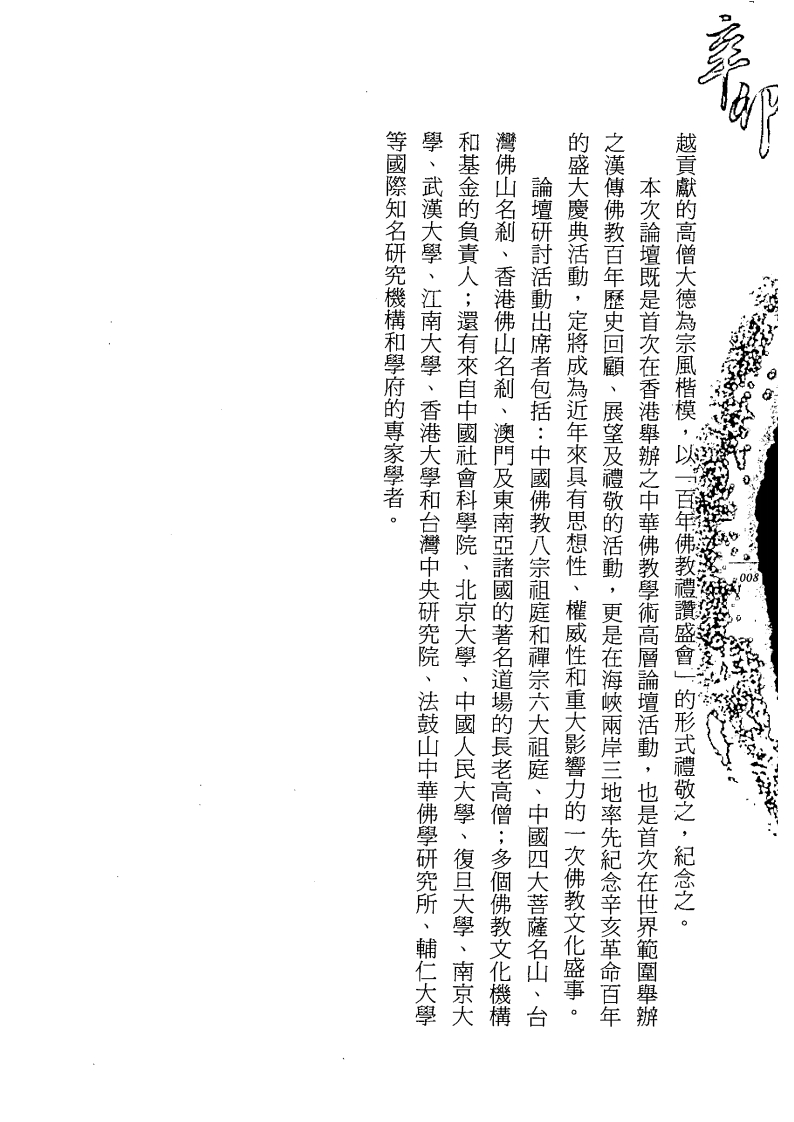 越貢獻的高僧大德為宗風楷模，以「百年佛教禮讚盛會」的形式禮敬之，紀念之。
本次論壇既是首次在香港舉辦之中華佛教學術高層論壇活動，也是首次在世界範圍舉辦
之漢傳佛教百年歷史回顧、展望及禮敬的活動，更是在海峽兩岸三地率先紀念辛亥革命百年
的盛大慶典活動，定將成為近年來具有思想性、權威性和重大影響力的一次佛教文化盛事。
論壇研討活動出席者包括：中國佛教八宗祖庭和禪宗六大祖庭、中國四大菩薩名山、台
灣佛山名剎、香港佛山名剎、澳門及東南亞諸國的著名道場的長老高僧；多個佛教文化機構
和基金的負責人；還有來自中國社會科學院、北京大學、中國人民大學、復旦大學、南京大
學、武漢大學、江南大學、香港大學和台灣中央研究院、法鼓山中華佛學研究所、輔仁大學
等國際知名研究機構和學府的專家學者。
008